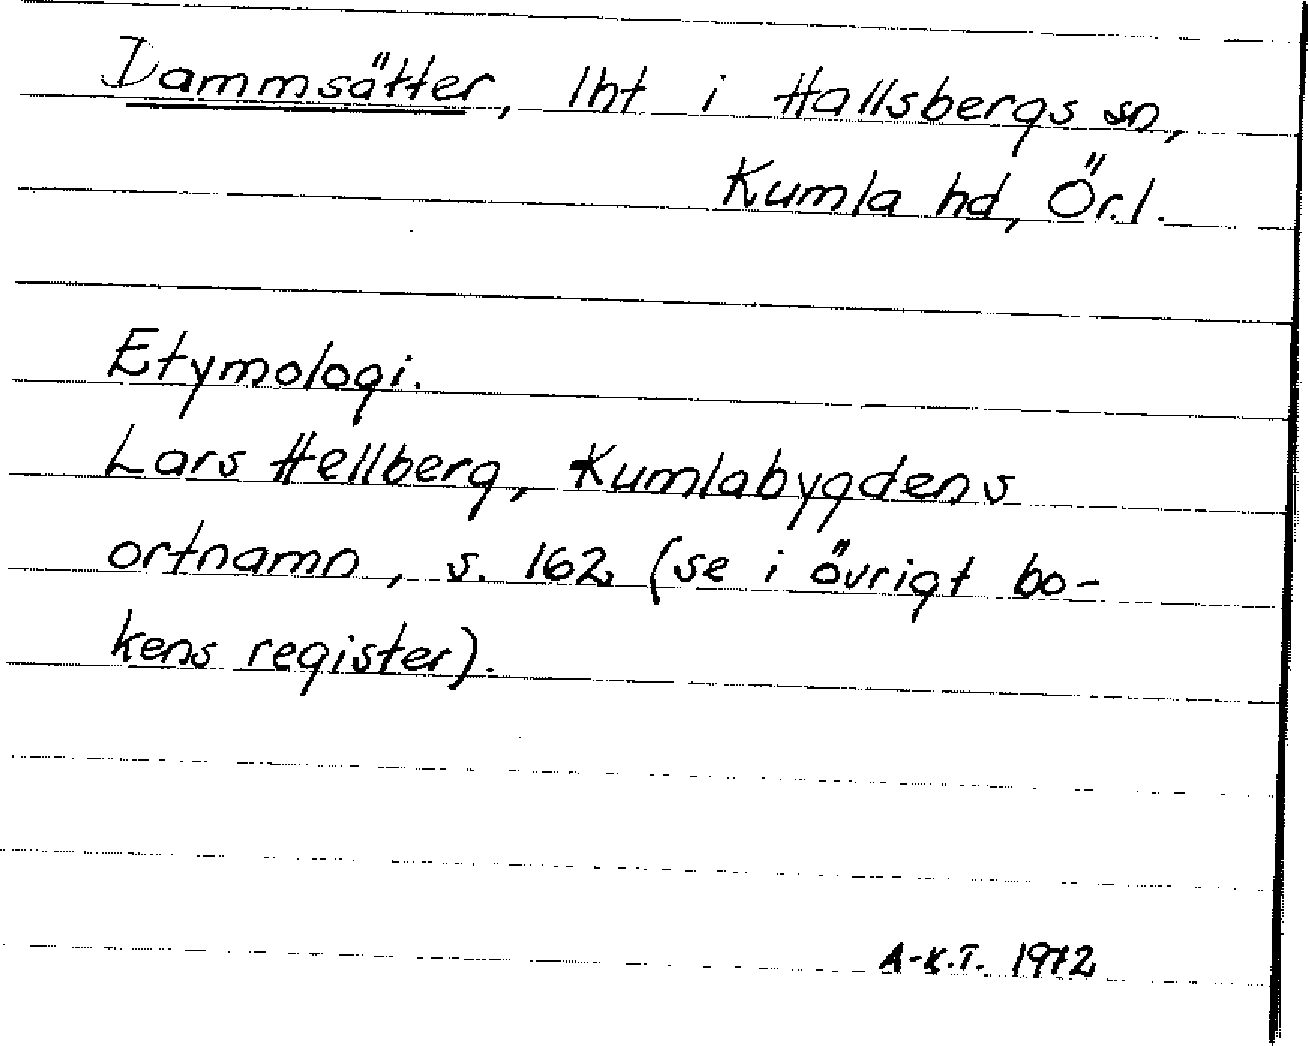 Dammsätter, lht i Hallsbergs sn,
Kumla hd, Ör.l.
Etymologi.
Lars Hellberg, Kumlabygdens
ortnamn, s. 162 (se i övrigt bo-
kens register).
A-K.T. 1972